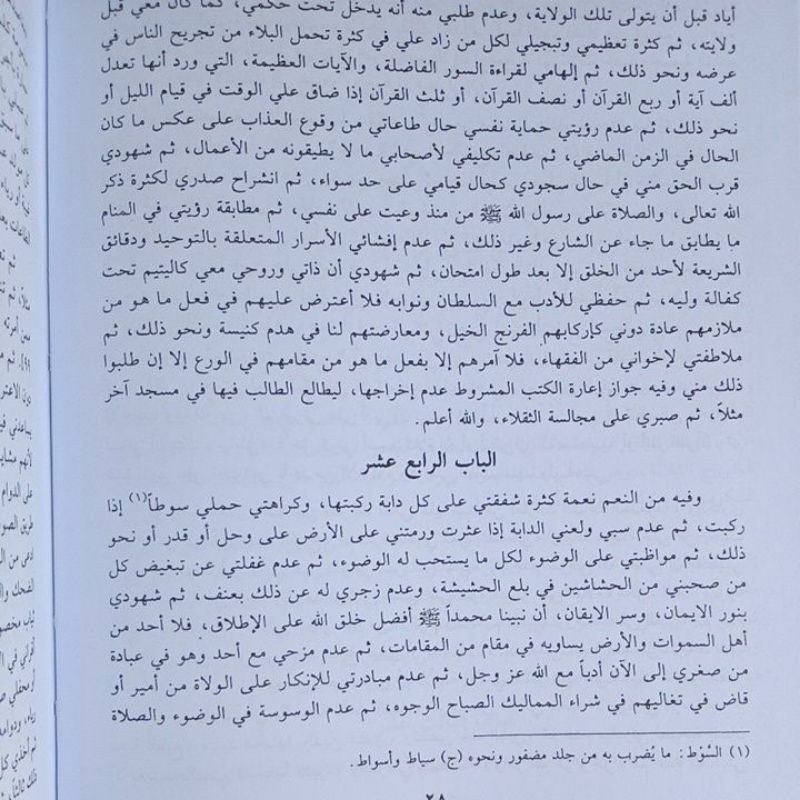 أياد قبل أن يتولى تلك الولاية، وعدم طلبي منه أنه يدخل تحت حكمي، كما كان معي قبل
ولايته، ثم كثرة تعظيمي وتبجيلي لكل من زاد علي في كثرة تحمل البلاء من تجريح الناس في
عرضه ونحو ذلك، ثم إلهامي لقراءة السور الفاضلة، والآيات العظيمة، التي ورد أنها تعدل
ألف آية أو ربع القرآن أو نصف القرآن، أو ثلث القرآن إذا ضاق علي الوقت في قيام الليل أو
نحو ذلك، ثم عدم رؤيتي حماية نفسي حال طاعاتي من وقوع العذاب على عكس ما كان
الحال في الزمن الماضي، ثم عدم تكليفي لأصحابي ما لا يطيقونه من الأعمال، ثم شهودي
قرب الحق مني في حال سجودي كحال قيامي على حد سواء، ثم انشراح صدري لكثرة ذكر
الله تعالى، والصلاة على رسول الله ﷺ من منذ وعيت على نفسي، ثم مطابقة رؤيتي في المنام
ما يطابق ما جاء عن الشارع وغير ذلك، ثم عدم إفشائي الأسرار المتعلقة بالتوحيد ودقائق
الشريعة لأحد من الخلق إلا بعد طول امتحان، ثم شهودي أن ذاتي وروحي معي كاليتيم تحت
كفالة وليه، ثم حفظي للأدب مع السلطان ونوابه فلا أعترض عليهم في فعل ما هو من
ملازمهم عادة دوني كإركابهم الفرنج الخيل، ومعارضتهم لنا في هدم كنيسة ونحو ذلك، ثم
ملاطفتي لإخواني من الفقهاء، فلا آمرهم إلا بفعل ما هو من مقامهم في الورع إلا إن طلبوا
ذلك مني وفيه جواز إعارة الكتب المشروط عدم إخراجها، ليطالع الطالب فيها في مسجد آخر
مثلاً، ثم صبري على مجالسة الثقلاء، والله أعلم.
الباب الرابع عشر
وفيه من النعم نعمة كثرة شفقتي على كل دابة ركبتها، وكراهتي حملي سوطاً(١) إذا
ركبت، ثم عدم سبي ولعني الدابة إذا عثرت ورمتني على الأرض على وحل أو قدر أو نحو
ذلك، ثم مواظبتي على الوضوء لكل ما يستحب له الوضوء، ثم عدم غفلتي عن تبغيض كل
من صحبني من الحشاشين في بلع الحشيشة، وعدم زجري له عن ذلك بعنف، ثم شهودي
بنور الايمان، وسر الايقان، أن نبينا محمداً ﷺ أفضل خلق الله على الإطلاق، فلا أحد من
أهل السموات والأرض يساويه في مقام من المقامات، ثم عدم مزحي مع أحد وهو في عبادة
من صغري إلى الآن أدباً مع الله عز وجل، ثم عدم مبادرتي للإنكار على الولاة من أمير أو
قاض في تغاليهم في شراء المماليك الصباح الوجوه، ثم عدم الوسوسة في الوضوء والصلاة
(١) السَّوْط: ما يُضرب به من جلد مضفور ونحوه (ج) سياط وأسواط.
٢٨